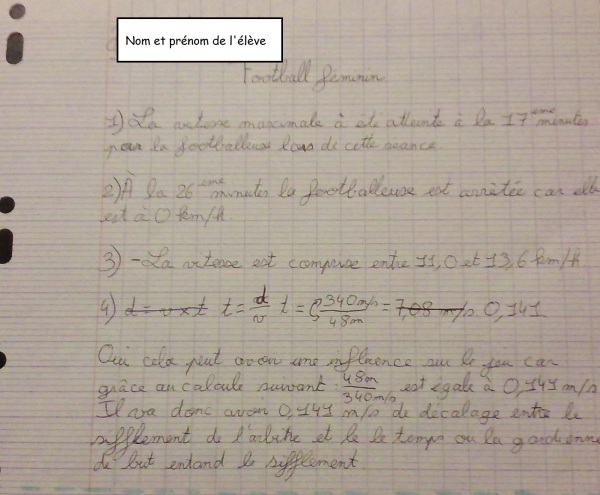 Nom et prénom de l'élève
Football féminin
1) La vitesse maximale à été atteinte à la 17ème minutes
pour la footballeuse lors de cette seance.
2) À la 26ème minutes la footballeuse est arrêtée car elle
est à 0 km/h.
3) - La vitesse est comprise entre 11,0 et 13,6 km/h
4) d = v x t t = d/v t = 340m/s / 48m = 7,08 m/s 0,141
Oui cela peut avoir une influence sur le jeu car
grâce au calcule suivant : 48m / 340m/s est égale à 0,141 m/s
Il va donc avoir 0,141 m/s de décalage entre le
sifflement de l'arbitre et le le temps ou la gardienne
de but entand le sifflement.